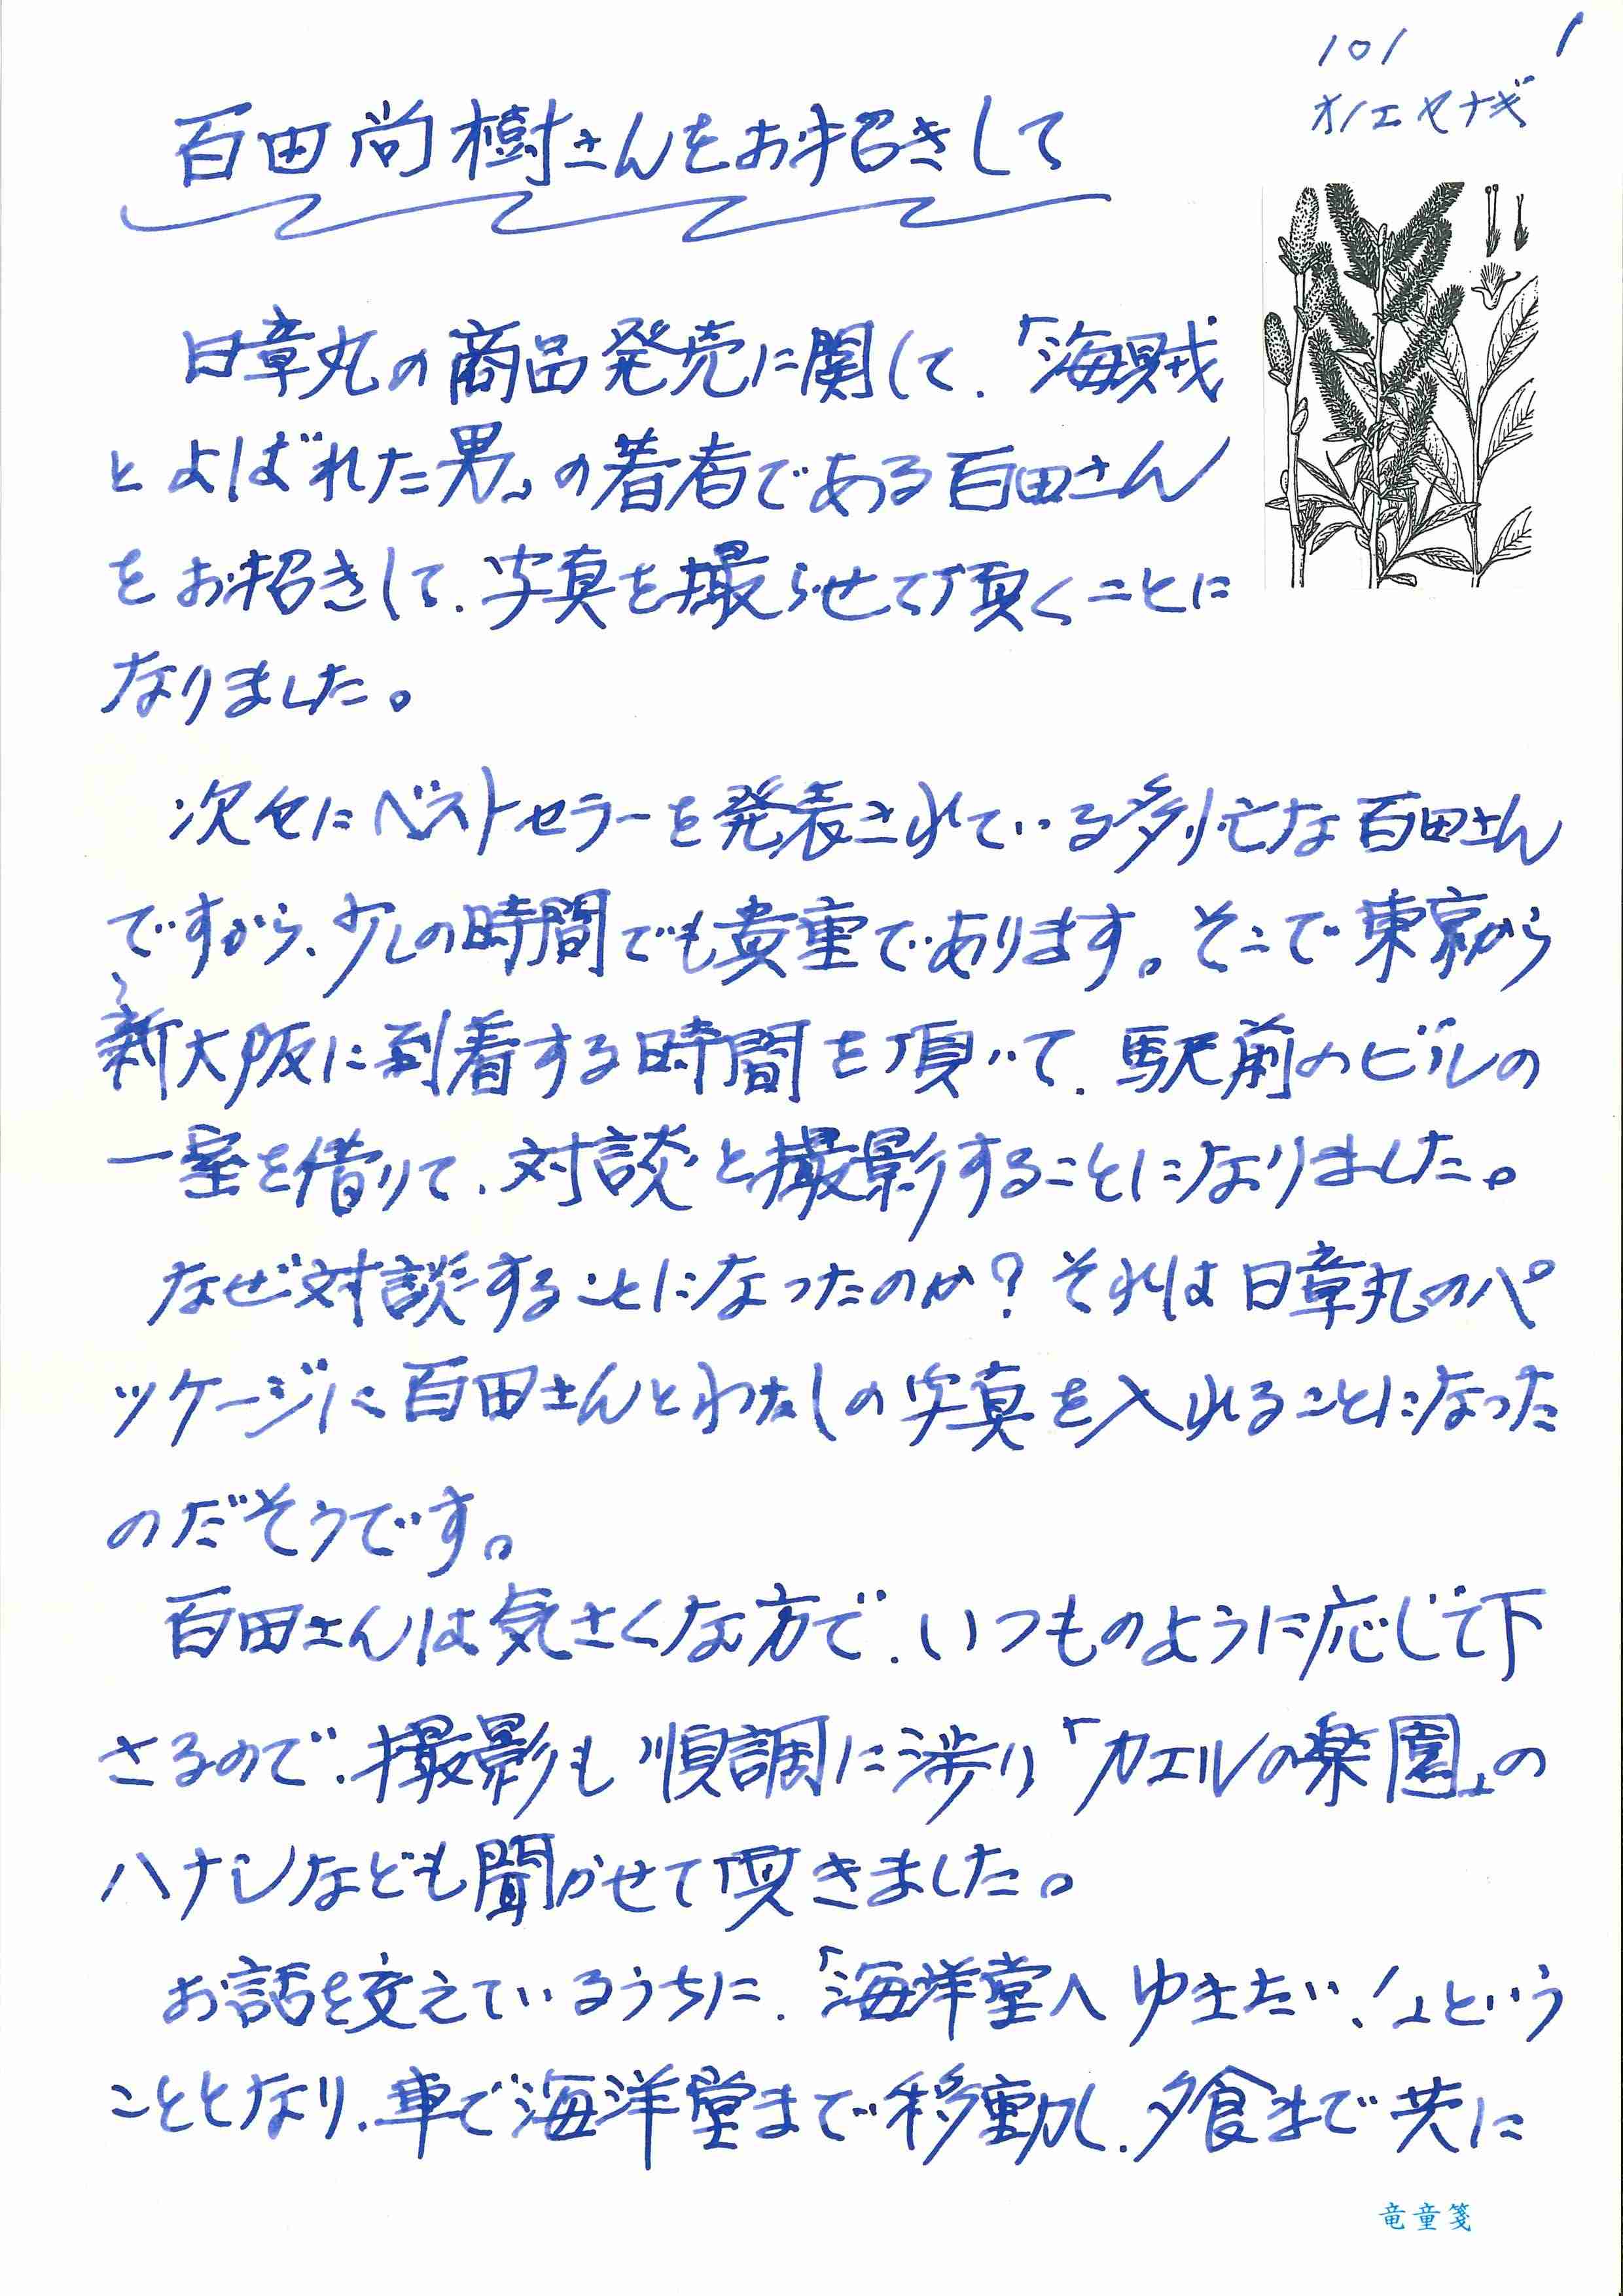 101
1
オノエヤナギ
百田尚樹さんをお招きして
日章丸の商品発売に関して、「海賊
とよばれた男」の著者である百田さん
をお招きして、写真を撮らせて頂くことに
なりました。
次々にベストセラーを発表されている多忙な百田さん
ですから、少しの時間でも貴重であります。そこで東京から
新大阪に到着する時間を頂いて、駅前のビルの
一室を借りて、対談と撮影することになりました。
なぜ対談することになったのか?それは日章丸のパ
ッケージに百田さんとわたしの写真を入れることになった
のだそうです。
百田さんは気さくな方で、いつものように応じて下
さるので、撮影も順調に渉り「カエルの楽園」の
ハナシなども聞かせて頂きました。
お話を交えているうちに、「海洋堂へゆきたい、!」という
こととなり、車で海洋堂まで移動し、夕食まで共に
竜童箋